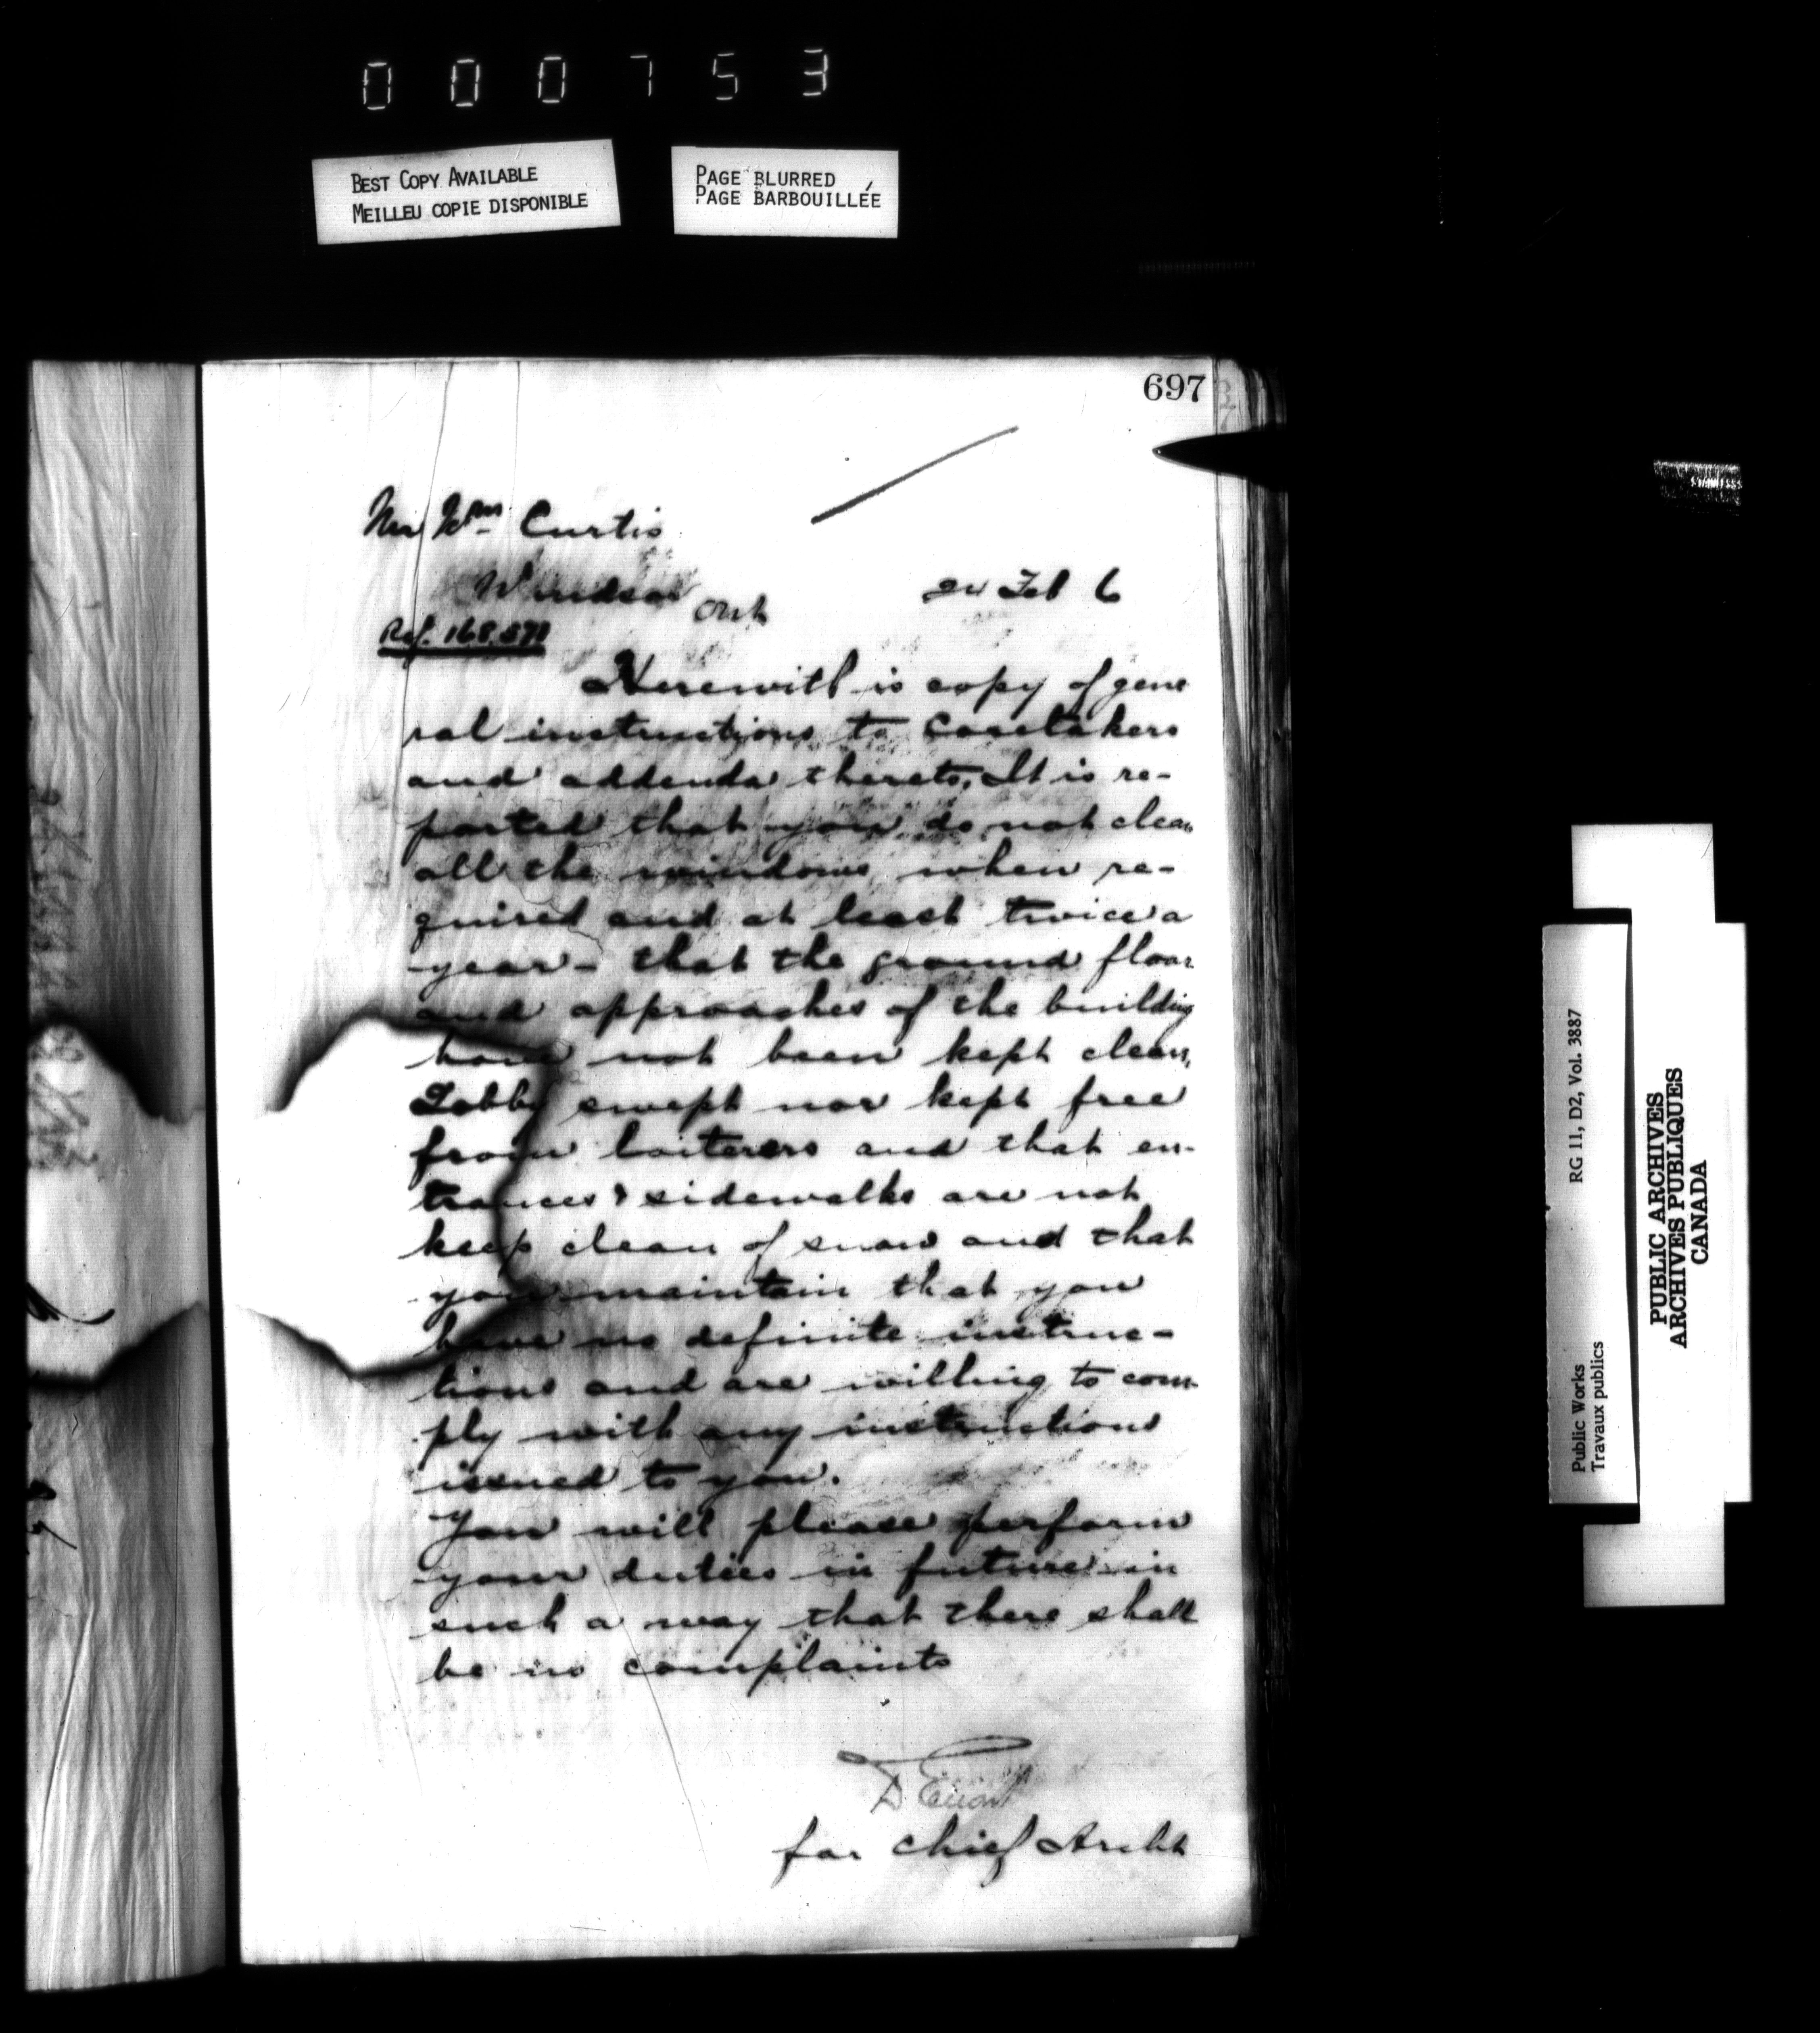 000753
BEST COPY AVAILABLE
MEILLEU COPIE DISPONIBLE
PAGE BLURRED
PAGE BARBOUILLÉE
697
Mr Wm Curtis
Windsor Ont
24 Feb 6
Ref. 168,
Herewith is copy of gene
ral instructions to Caretakers
and addenda thereto. It is re-
ported that you do not clean
all the windows when re-
quired and at least twice a
year - that the ground floor
and approaches of the building
have not been kept clean,
Lobby swept nor kept free
from loiterers and that en-
trances & sidewalks are not
keep clean of snow and that
you maintain that you
have no definite instruc-
tions and are willing to com-
ply with any instructions
issued to you.
You will please perform
your duties in future in
such a way that there shall
be no complaints
D Ewart
for Chief Archt
Public Works
Travaux publics
RG 11, D2, Vol. 3887
PUBLIC ARCHIVES
ARCHIVES PUBLIQUES
CANADA